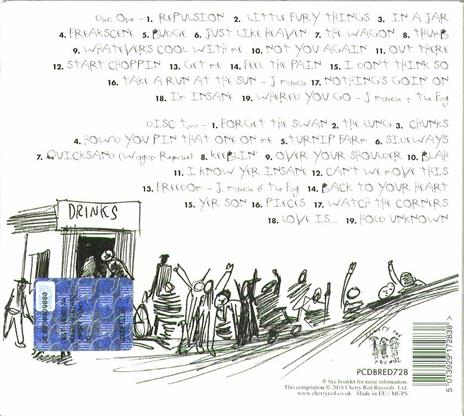 Disc One - 1. REPULSION 2. LITTLE FURY THINGS 3. IN A JAR
4. FREAKSCENE 5. BUDGE 6. JUST LIKE HEAVEN 7. THE WAGON 8. THUMB
9. WHATEVERS COOL WITH ME 10. NOT YOU AGAIN 11. OUT THERE
12. START CHOPPIN 13. GET ME 14. FEEL THE PAIN 15. I DON'T THINK SO
16. TAKE A RUN AT THE SUN - J Mascis 17. NOTHINGS GOIN ON
18. I'm INSANE 19. WHERED YOU GO - J Mascis + The Fog
DISC Two - 1. FORGET THE SWAN 2. THE LUNG 3. CHUNKS
4. HOW'D YOU PIN THAT ONE ON ME 5. TURNIP FARM 6. SIDEWAYS
7. QUICKSAND (Wagon Reprise) 8. KEEBLIN' 9. OVER YOUR SHOULDER 10. BLAH
11. I KNOW YER INSANE 12. CAN'T WE MOVE THIS
13. FREEDOM - J Mascis & The Fog 14. BACK TO YOUR HEART
15. YER SON 16. PIECES 17. WATCH THE CORNERS
18. LOVE IS... 19. HOLD UNKNOWN
DRINKS
cherry red
records
PCDBRED728
℗ See booklet for more information.
This compilation © 2018 Cherry Red Records Ltd.
www.cherryred.co.uk Made in EU / MCPS
5 013929 172838 >